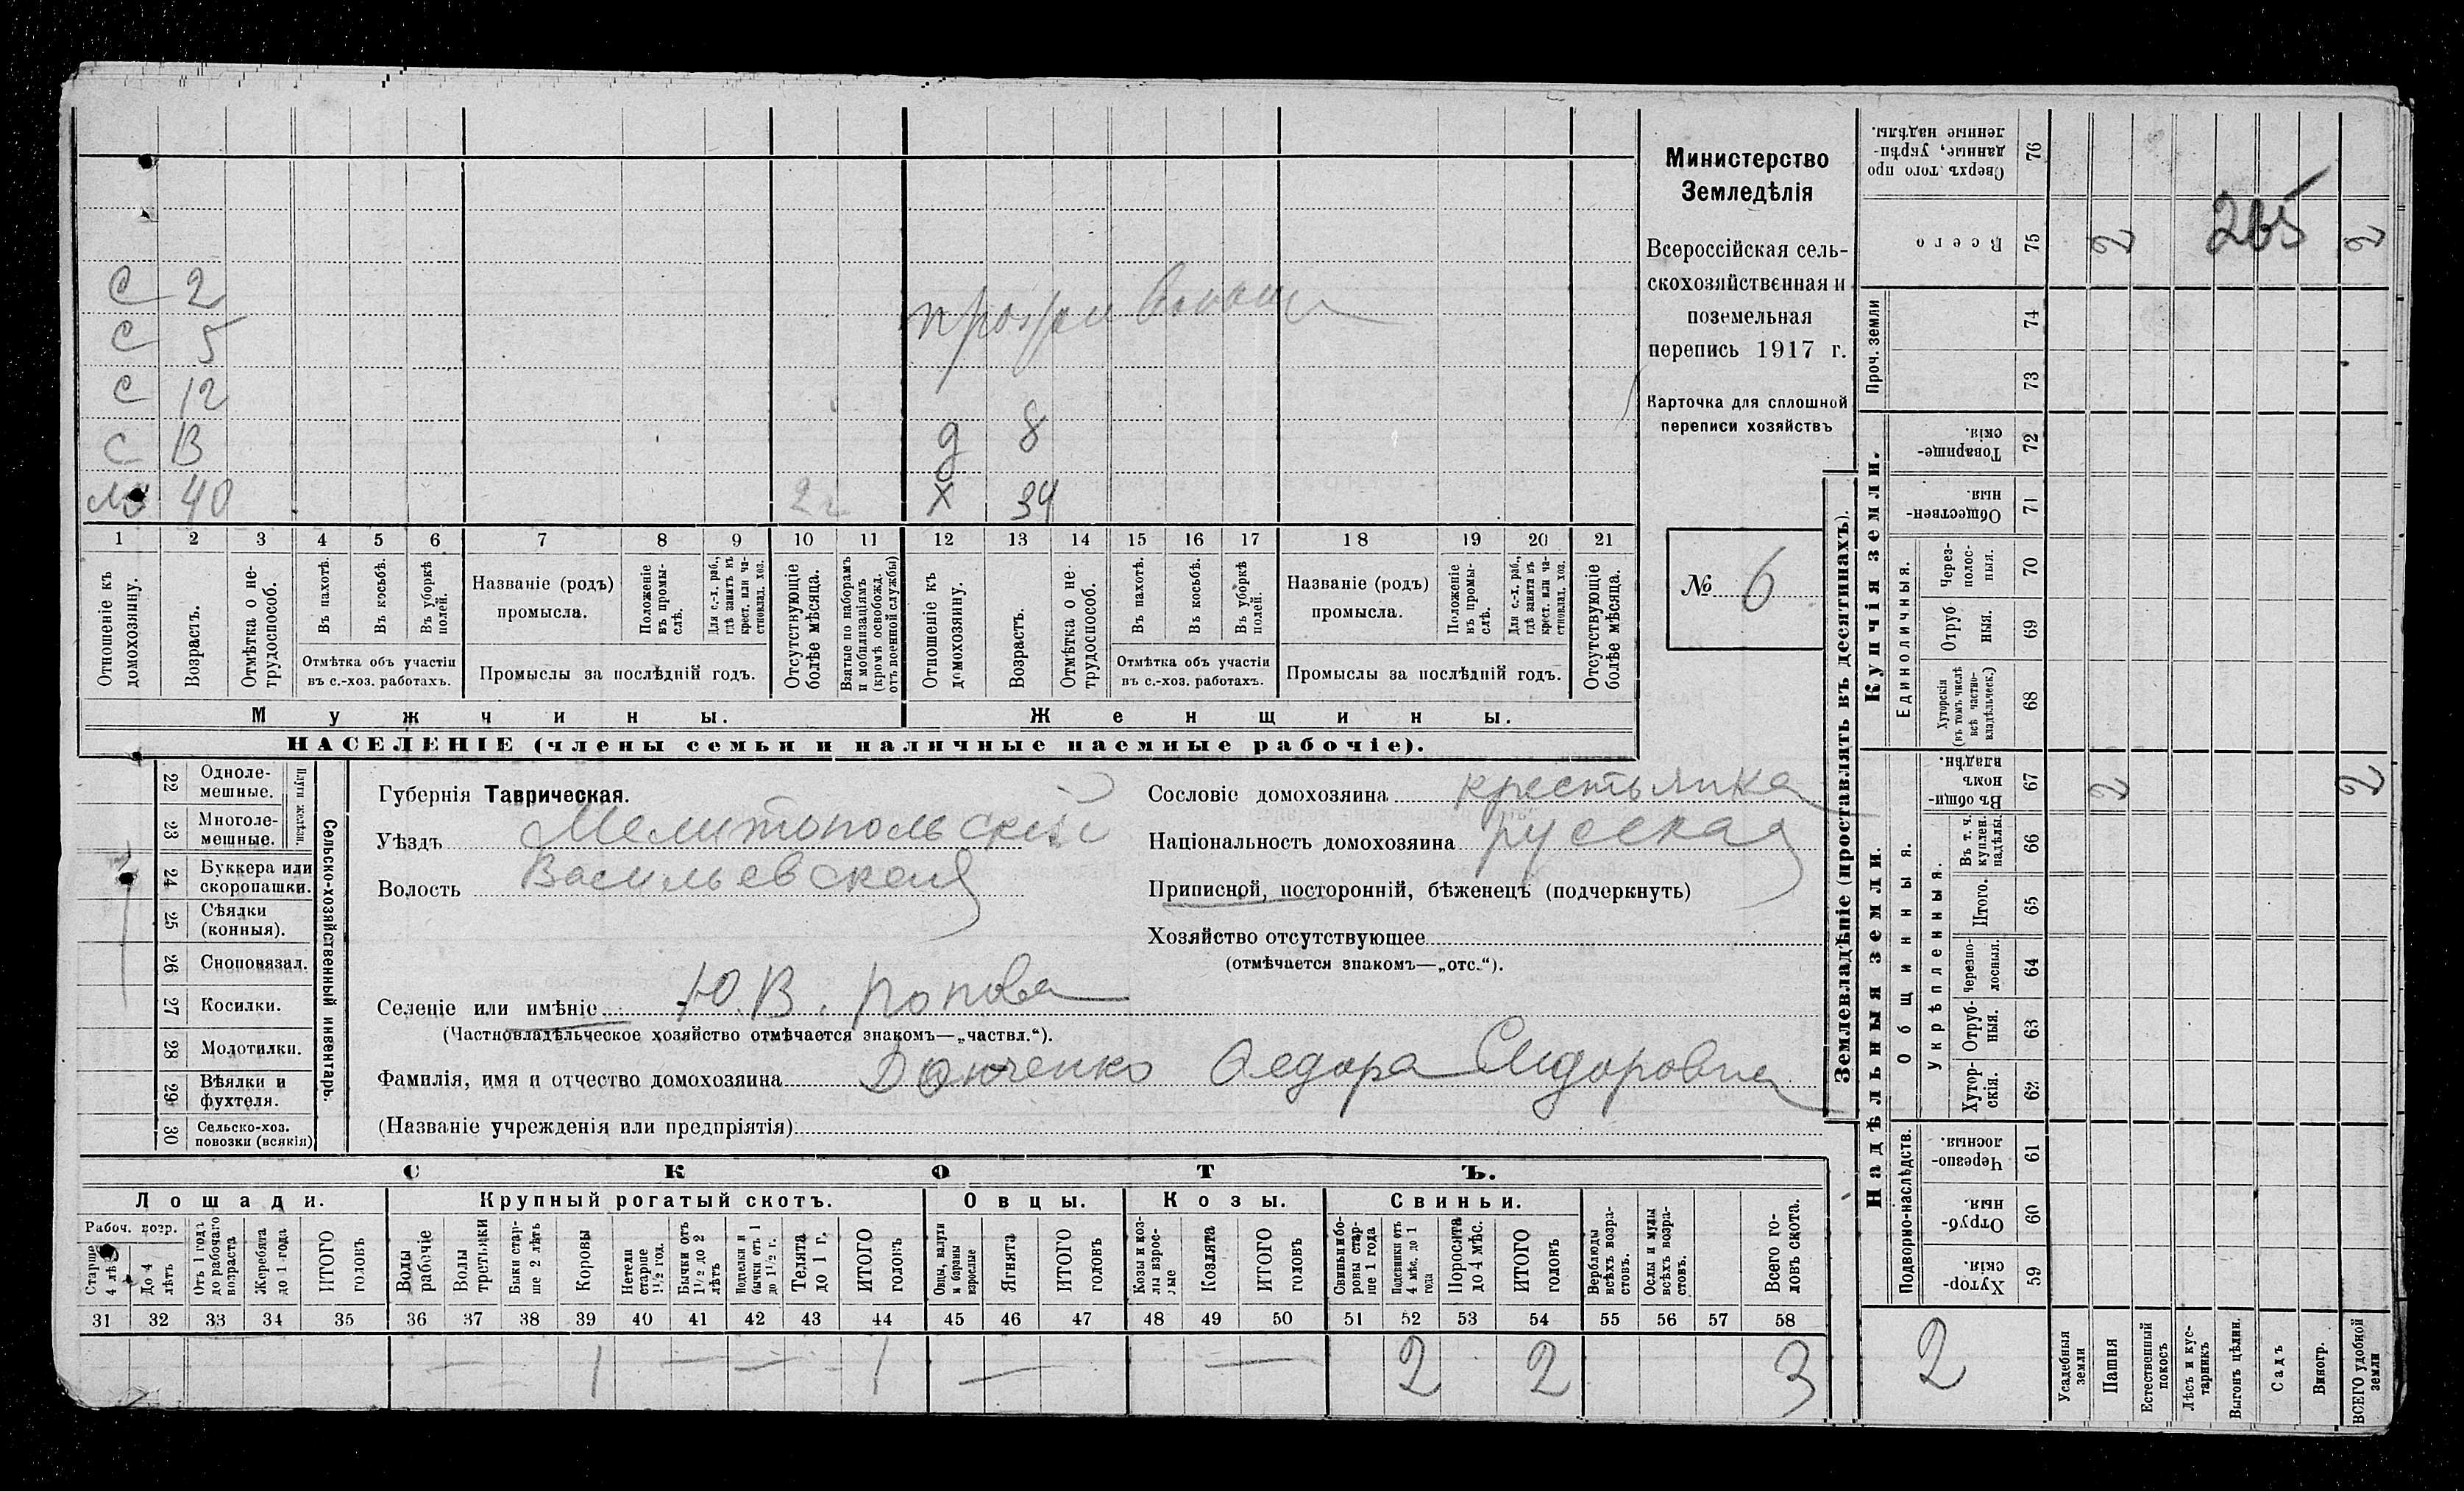 Министерство
Земледѣлія
Всероссійская сель-
скохозяйственная и
поземельная
перепись 1917 г.
Карточка для сплошной
переписи хозяйствъ
№ 6
С 2
С 5
С 12
С 13
д 8
40
2 г
Х 34
1 2 3 4 5 6 7 8 9 10 11 12 13 14 15 16 17 18 19 20 21
Отношеніе къ домохозяину.
Возрастъ.
Отмѣтка о не-трудоспособ.
Въ пахотѣ.
Въ косьбѣ.
Въ уборкѣ полей.
Отмѣтка объ участіи
въ с.-хоз. работахъ.
Названіе (родъ)
промысла.
Положеніе въ промы-слѣ.
Для с.-х. раб., гдѣ занятъ въ крест. или ча-стновлад. хоз.
Промыслы за послѣдній годъ.
Отсутствующіе болѣе мѣсяца.
Взятые по наборамъ и мобилизаціямъ (кромѣ освобожд. отъ военной службы)
Отношеніе къ домохозяину.
Возрастъ.
Отмѣтка о не трудоспособ.
Въ пахотѣ.
Въ косьбѣ.
Въ уборкѣ полей.
Отмѣтка объ участіи
въ с.-хоз. работахъ.
Названіе (родъ)
промысла.
Положеніе въ промы-слѣ.
Для с.-х. раб., гдѣ занята въ крест. или ча-стновлад. хоз.
Промыслы за послѣдній годъ.
Отсутствующіе болѣе мѣсяца.
Мужчины.
Женщины.
НАСЕЛЕНІЕ (члены семьи и наличные наемные рабочіе).
22 Одноле-мешные.
23 Многоле-мешные.
Плуги желѣзн.
24 Буккера или скоропашки.
25 Сѣялки (конныя).
26 Сноповязал.
27 Косилки.
28 Молотилки.
29 Вѣялки и фухтеля.
30 Сельско-хоз. повозки (всякія)
Сельско-хозяйственный инвентарь.
Губернія Таврическая.
Уѣздъ Мелитопольскій
Волость Васильевская
Сословіе домохозяина крестьянка
Національность домохозяина русская
Приписной, посторонній, бѣженецъ (подчеркнуть)
Хозяйство отсутствующее
(отмѣчается знакомъ—„отс.“).
Селеніе или имѣніе Ю. В. Попова
(Частновладѣльческое хозяйство отмѣчается знакомъ—„частвл.“).
Фамилія, имя и отчество домохозяина Донченко Федора Сидоровна
(Названіе учрежденія или предпріятія)
СКОТЪ.
Лошади.
Крупный рогатый скотъ.
Овцы.
Козы.
Свиньи.
Рабоч. возр.
Старше 4 лѣтъ
До 4 лѣтъ
Отъ 1 года до рабочаго возраста
Жеребята до 1 года
ИТОГО головъ
Волы рабочіе
Волы третьяки
Быки стар-ше 2 лѣтъ
Коровы
Нетели старше 1½ год.
Бычки отъ 1½ до 2 лѣтъ
Подтелки и бычки отъ 1 до 1½ г.
Телята до 1 г.
ИТОГО головъ
Овцы, валухи и бараны взрослые
Ягнята
ИТОГО головъ
Козы и коз-лы взрос-лые
Козлята
ИТОГО головъ
Свиньи и бо-ровы стар-ше 1 года
Подсвинки отъ 4 мѣс. до 1 года
Поросята до 4 мѣс.
ИТОГО головъ
Верблюды всѣхъ возра-стовъ.
Ослы и мулы всѣхъ возра-стовъ.
Всего го-ловъ скота.
31 32 33 34 35 36 37 38 39 40 41 42 43 44 45 46 47 48 49 50 51 52 53 54 55 56 57 58
— 1 — — 1 — — 2 2 3
Землевладѣніе (проставлять въ десятинахъ).
Сверхъ того про данные, укрѣп-ленные надѣлы. 76
Всего 75 2 2
265
Проч. земли
74
73
Купчія земли.
Товарище-скія. 72
Обществен-ныя. 71
Единоличныя.
Через-полос-ныя. 70
Отруб ныя. 69
Хуторскія (въ томъ числѣ всѣ частно-владѣльческ.) 68
Надѣльныя земли.
Общинныя.
Въ общи-номъ владѣн. 67 2 2
Укрѣпленныя.
Въ т. ч. куплен. надѣлы. 66
Итого. 65
Черезпо-лосныя. 64
Отруб-ныя. 63
Хутор-скія. 62
Подворно-наслѣдств.
Черезпо-лосныя. 61
Отруб-ныя. 60
Хутор-скія. 59
2
Усадебныя земли
Пашня
Естественный покосъ
Лѣсъ и кус-тарникъ
Выгонъ цѣлин.
Садъ
Виногр.
ВСЕГО удобной земли